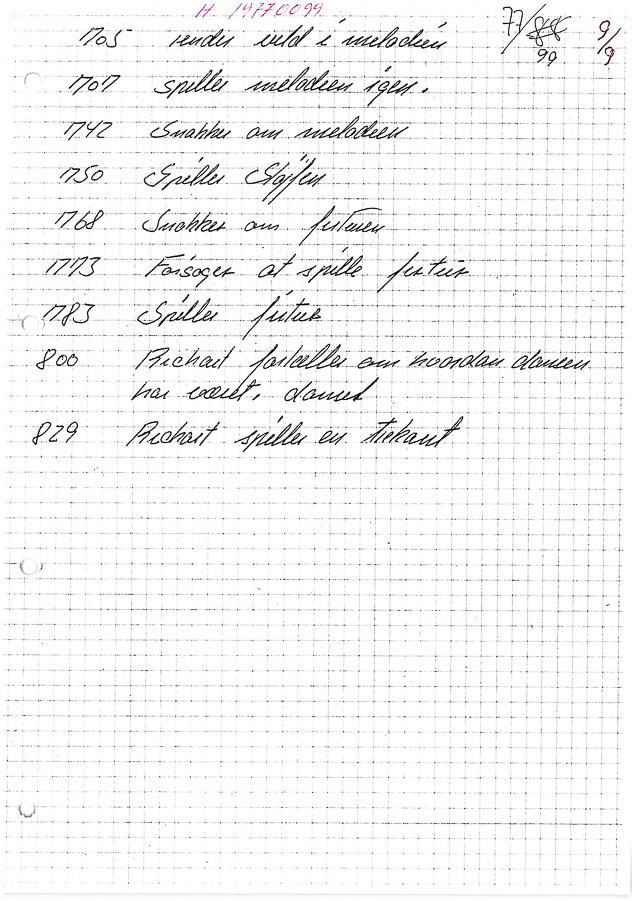 H 19770099
77/88 99
9/9
1705 render ind i melodien
1707 spiller melodien igen.
1742 Snakker om melodien
1750 Spiller
1768 Snakker om futuren
1773 Forsøger at spille
1783 Spiller
800 Richart fortæller om hvordan dansen
har været. danset
829 Richart spiller en firkant